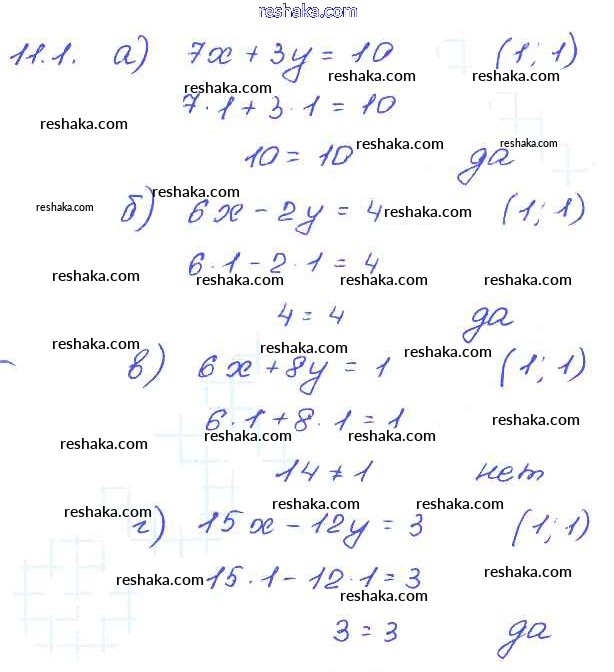 reshaka.com
11.1. а) 7x + 3y = 10 (1; 1)
reshaka.com reshaka.com reshaka.com
7·1 + 3·1 = 10
reshaka.com reshaka.com
10 = 10 да
reshaka.com
reshaka.com б) 6x - 2y = 4 reshaka.com (1; 1)
6·1 - 2·1 = 4
reshaka.com reshaka.com reshaka.com reshaka.com
4 = 4 да
reshaka.com reshaka.com reshaka.com
в) 6x + 8y = 1 (1; 1)
6·1 + 8·1 = 1 reshaka.com
reshaka.com reshaka.com reshaka.com
14 ≠ 1 нет
reshaka.com reshaka.com reshaka.com
г) 15x - 12y = 3 (1; 1)
reshaka.com 15·1 - 12·1 = 3 reshaka.com
reshaka.com
3 = 3 да